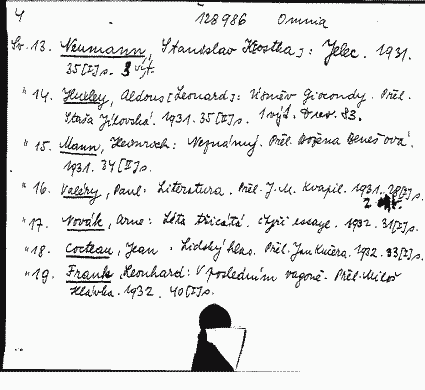 4 128986 Omnia
Sv. 13. Neumann, Stanislav K[ostka]: Jelec. 1931.
35[I]s. 3 výt.
" 14. Huxley, Aldous [Leonard]: Úsměv Giocondy. Přel.
Staša Jílovská. 1931. 35[I]s. 1 výt. Drev. 83.
" 15. Mann, Heinrich: Neznámý. Přel. Božena Benešová.
1931. 34[I]s.
" 16. Valéry, Paul: Literatura. Přel. J. M. Kvapil. 1931. 28[I]s.
2
" 17. Novák, Arne: Léta třicátá. Čtyři essaye. 1932. 31[I]s.
" 18. Cocteau, Jean: Lidský hlas. Přel. Jan Kučera. 1932. 33[I]s.
" 19. Frank, Leonhard: V posledním vagoně. Přel. Miloš
Hlávka. 1932. 40[I]s.